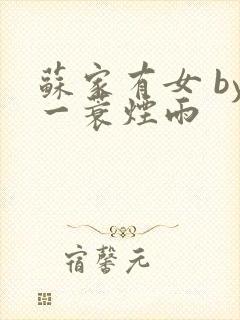 蘇家有女 by
一蓑煙雨
宿馨元